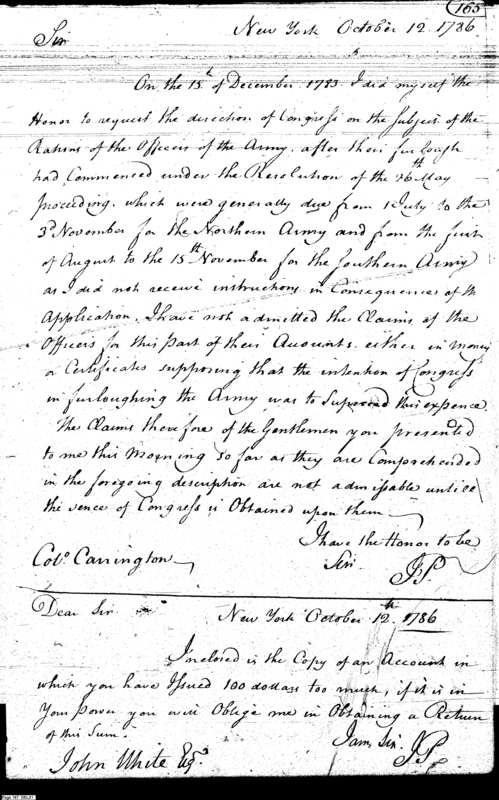 165
New York October 12. 1786
Sir
On the 15th of December 1783. I did myself the
Honor to request the direction of Congress on the Subject of the
Rations of the Officers of the Army, after their furlough
had Commenced under the Resolution of the 26th May
preceeding. which were generally due from 1st July to the
3d November for the Northern Army and from the first
of August to the 15th November for the Southern Army
as I did not receive instructions in Consequence of th
Application, I have not admitted the Claims of the
Officers for this part of their Accounts. either in Money
or Certificates supposing that the intention of Congress
in furloughing the Army was to Superced this expence.
The Claims therefore of the Gentlemen you presented
to me this Morning so far as they are Comprehended
in the foregoing description are not admissable untill
the sence of Congress is Obtained upon them
I have the Honor to be
Colo. Carrington
Sir
JP.
Dear Sir
New York October 12th. 1786
Inclosed is the Copy of an Account in
which you have Issued 100 dollars too much, if it is in
Your power you will Oblige me in Obtaining a Return
of this Sum.
I am Sir.
JP.
John White Esqr.